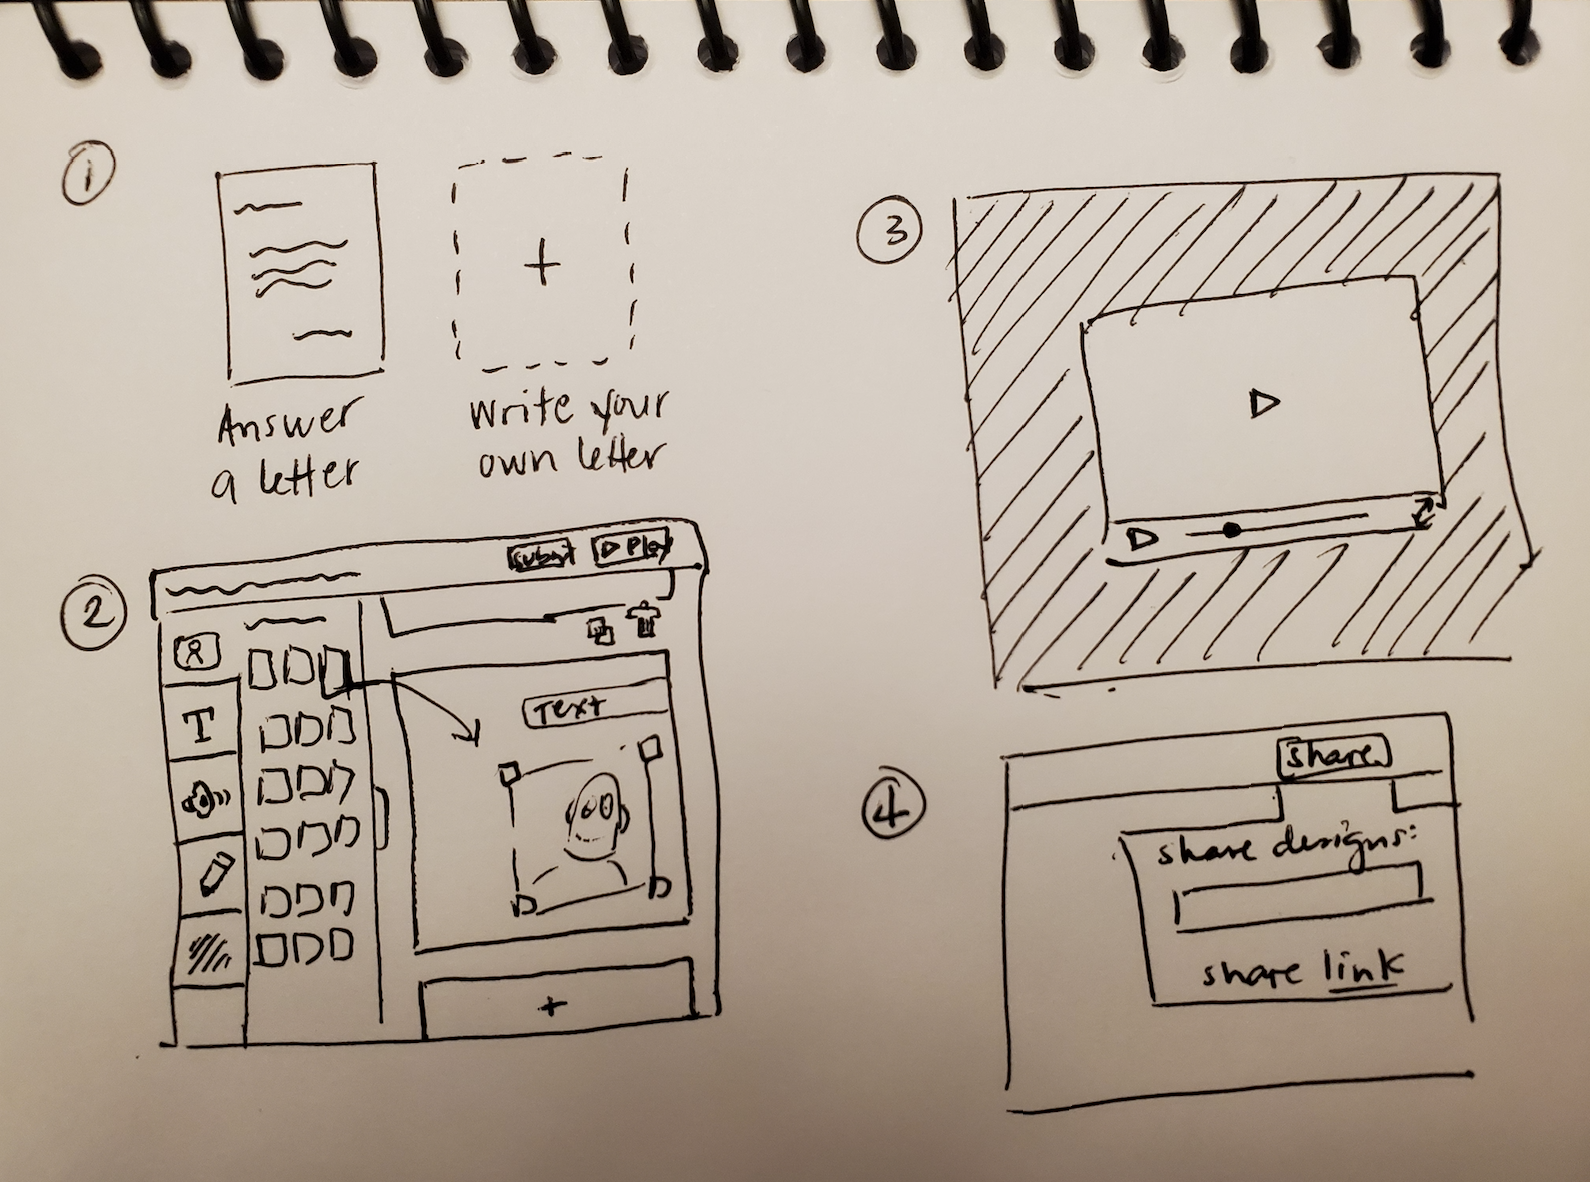 1
Answer
a letter
+
Write your
own letter
2
submit
Play
T
Text
+
3
4
share
share designs:
share link